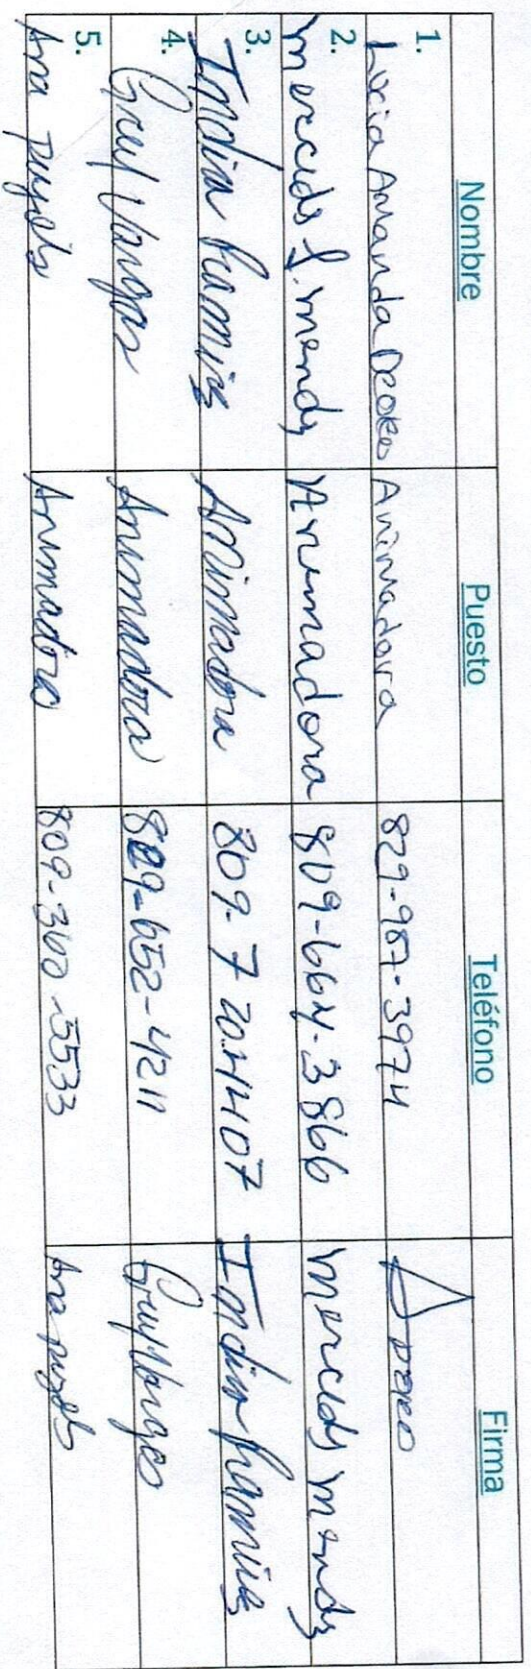 Nombre Puesto Teléfono Firma
1. Lucia Amanda Animadora 829-987-3974
2. Merceds J. Mendz Animadora 809-664-3866 Merceds Mendz
3. India Ramirz Animadora 809-720-4407 India Ramirz
4. Vargas Animadora 829-652-4211
5. Ana pujols Animadora 809-360-5533 Ana pujols